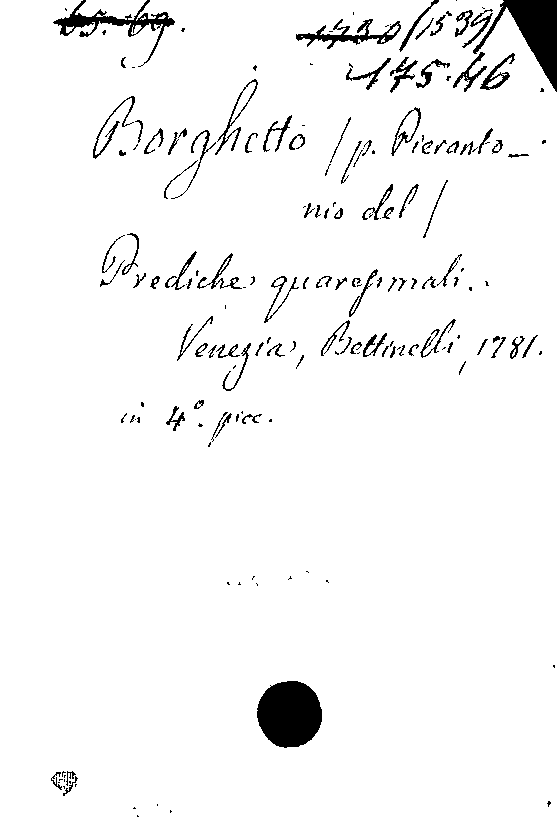 65. 69.
1730 (1539)
175.46
Borghetto / p. Pieranto_
nio del /
Prediche quaresimali.
Venezia, Bettinelli, 1781.
in 4°. picc.